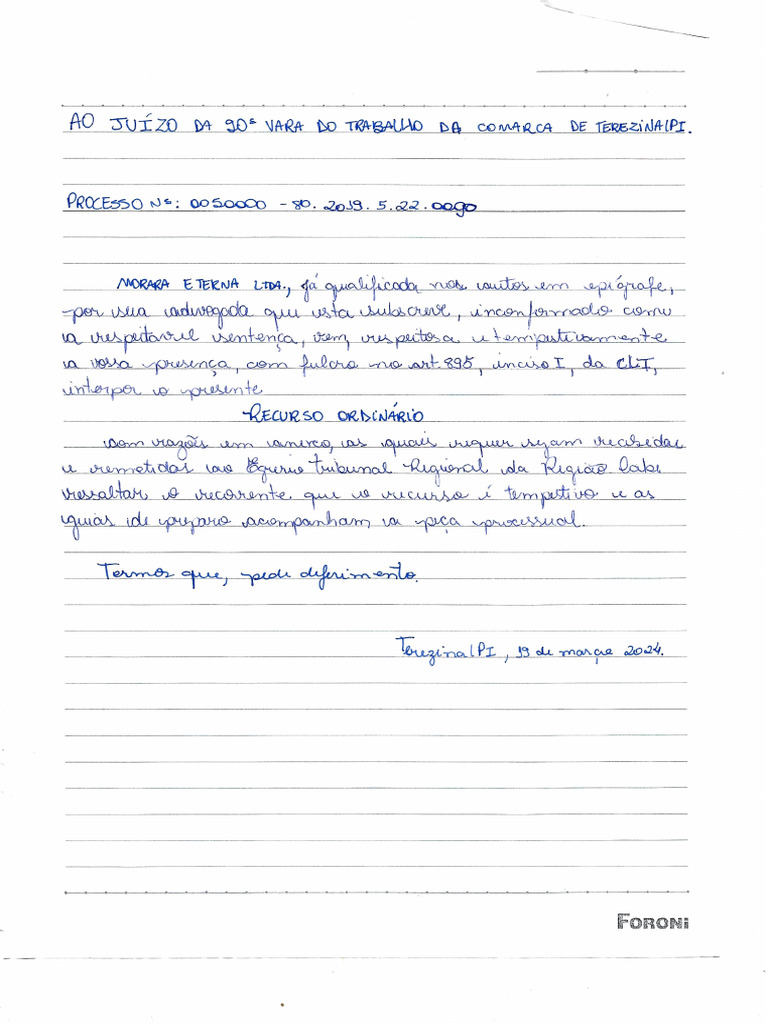 AO JUÍZO DA 90ª VARA DO TRABALHO DA COMARCA DE TEREZINA/PI.
PROCESSO Nº: 0050000 - 80. 2019. 5. 22. 0090
MORARA ETERNA LTDA., já qualificada nos autos em epígrafe,
por sua advogada que esta subscreve, inconformado com
a respeitável sentença, vem, respeitosa e tempestivamente
a vossa presença, com fulcro no art. 895, inciso I, da CLT,
interpor o presente
RECURSO ORDINÁRIO
com razões em anexo, as quais requer sejam recebidas
e remetidas ao Egrério Tribunal Regional da Região Cabe
ressaltar o recorrente que o recurso é tempestivo e as
guias de preparo acompanham a peça processual.
Termos que, pede deferimento.
Terezina/PI, 19 de março 2024.
FORONI